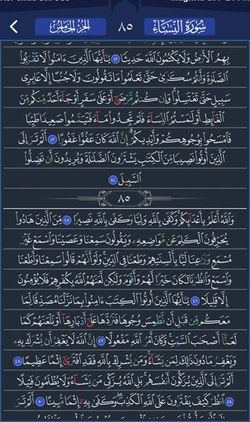 سُورَةُ النِّسَاءِ ٨٥ الجُزْءُ الخَامِسُ
بِهِمُ ٱلۡأَرۡضُ وَلَا يَكۡتُمُونَ ٱللَّهَ حَدِيثٗا ٤٢ يَٰٓأَيُّهَا ٱلَّذِينَ ءَامَنُواْ لَا تَقۡرَبُواْ
ٱلصَّلَوٰةَ وَأَنتُمۡ سُكَٰرَىٰ حَتَّىٰ تَعۡلَمُواْ مَا تَقُولُونَ وَلَا جُنُبًا إِلَّا عَابِرِي
سَبِيلٍ حَتَّىٰ تَغۡتَسِلُواْۚ وَإِن كُنتُم مَّرۡضَىٰٓ أَوۡ عَلَىٰ سَفَرٍ أَوۡ جَآءَ أَحَدٞ مِّنكُم مِّنَ
ٱلۡغَآئِطِ أَوۡ لَٰمَسۡتُمُ ٱلنِّسَآءَ فَلَمۡ تَجِدُواْ مَآءٗ فَتَيَمَّمُواْ صَعِيدٗا طَيِّبٗا
فَٱمۡسَحُواْ بِوُجُوهِكُمۡ وَأَيۡدِيكُمۡۗ إِنَّ ٱللَّهَ كَانَ عَفُوًّا غَفُورًا ٤٣ أَلَمۡ تَرَ إِلَى
ٱلَّذِينَ أُوتُواْ نَصِيبٗا مِّنَ ٱلۡكِتَٰبِ يَشۡتَرُونَ ٱلضَّلَٰلَةَ وَيُرِيدُونَ أَن تَضِلُّواْ
ٱلسَّبِيلَ ٤٤
٨٥
وَٱللَّهُ أَعۡلَمُ بِأَعۡدَآئِكُمۡۚ وَكَفَىٰ بِٱللَّهِ وَلِيّٗا وَكَفَىٰ بِٱللَّهِ نَصِيرٗا ٤٥ مِّنَ ٱلَّذِينَ هَادُواْ
يُحَرِّفُونَ ٱلۡكَلِمَ عَن مَّوَاضِعِهِۦ وَيَقُولُونَ سَمِعۡنَا وَعَصَيۡنَا وَٱسۡمَعۡ غَيۡرَ
مُسۡمَعٖ وَرَٰعِنَا لَيَّۢا بِأَلۡسِنَتِهِمۡ وَطَعۡنٗا فِي ٱلدِّينِۚ وَلَوۡ أَنَّهُمۡ قَالُواْ سَمِعۡنَا وَأَطَعۡنَا
وَٱسۡمَعۡ وَٱنظُرۡنَا لَكَانَ خَيۡرٗا لَّهُمۡ وَأَقۡوَمَ وَلَٰكِن لَّعَنَهُمُ ٱللَّهُ بِكُفۡرِهِمۡ فَلَا يُؤۡمِنُونَ
إِلَّا قَلِيلٗا ٤٦ يَٰٓأَيُّهَا ٱلَّذِينَ أُوتُواْ ٱلۡكِتَٰبَ ءَامِنُواْ بِمَا نَزَّلۡنَا مُصَدِّقٗا لِّمَا
مَعَكُم مِّن قَبۡلِ أَن نَّطۡمِسَ وُجُوهٗا فَنَرُدَّهَا عَلَىٰٓ أَدۡبَارِهَآ أَوۡ نَلۡعَنَهُمۡ كَمَا
لَعَنَّآ أَصۡحَٰبَ ٱلسَّبۡتِۚ وَكَانَ أَمۡرُ ٱللَّهِ مَفۡعُولًا ٤٧ إِنَّ ٱللَّهَ لَا يَغۡفِرُ أَن يُشۡرَكَ بِهِۦ
وَيَغۡفِرُ مَا دُونَ ذَٰلِكَ لِمَن يَشَآءُۚ وَمَن يُشۡرِكۡ بِٱللَّهِ فَقَدِ ٱفۡتَرَىٰٓ إِثۡمًا عَظِيمًا ٤٨
أَلَمۡ تَرَ إِلَى ٱلَّذِينَ يُزَكُّونَ أَنفُسَهُمۚ بَلِ ٱللَّهُ يُزَكِّي مَن يَشَآءُ وَلَا يُظۡلَمُونَ فَتِيلًا
٤٩ ٱنظُرۡ كَيۡفَ يَفۡتَرُونَ عَلَى ٱللَّهِ ٱلۡكَذِبَۖ وَكَفَىٰ بِهِۦٓ إِثۡمٗا مُّبِينًا ٥٠